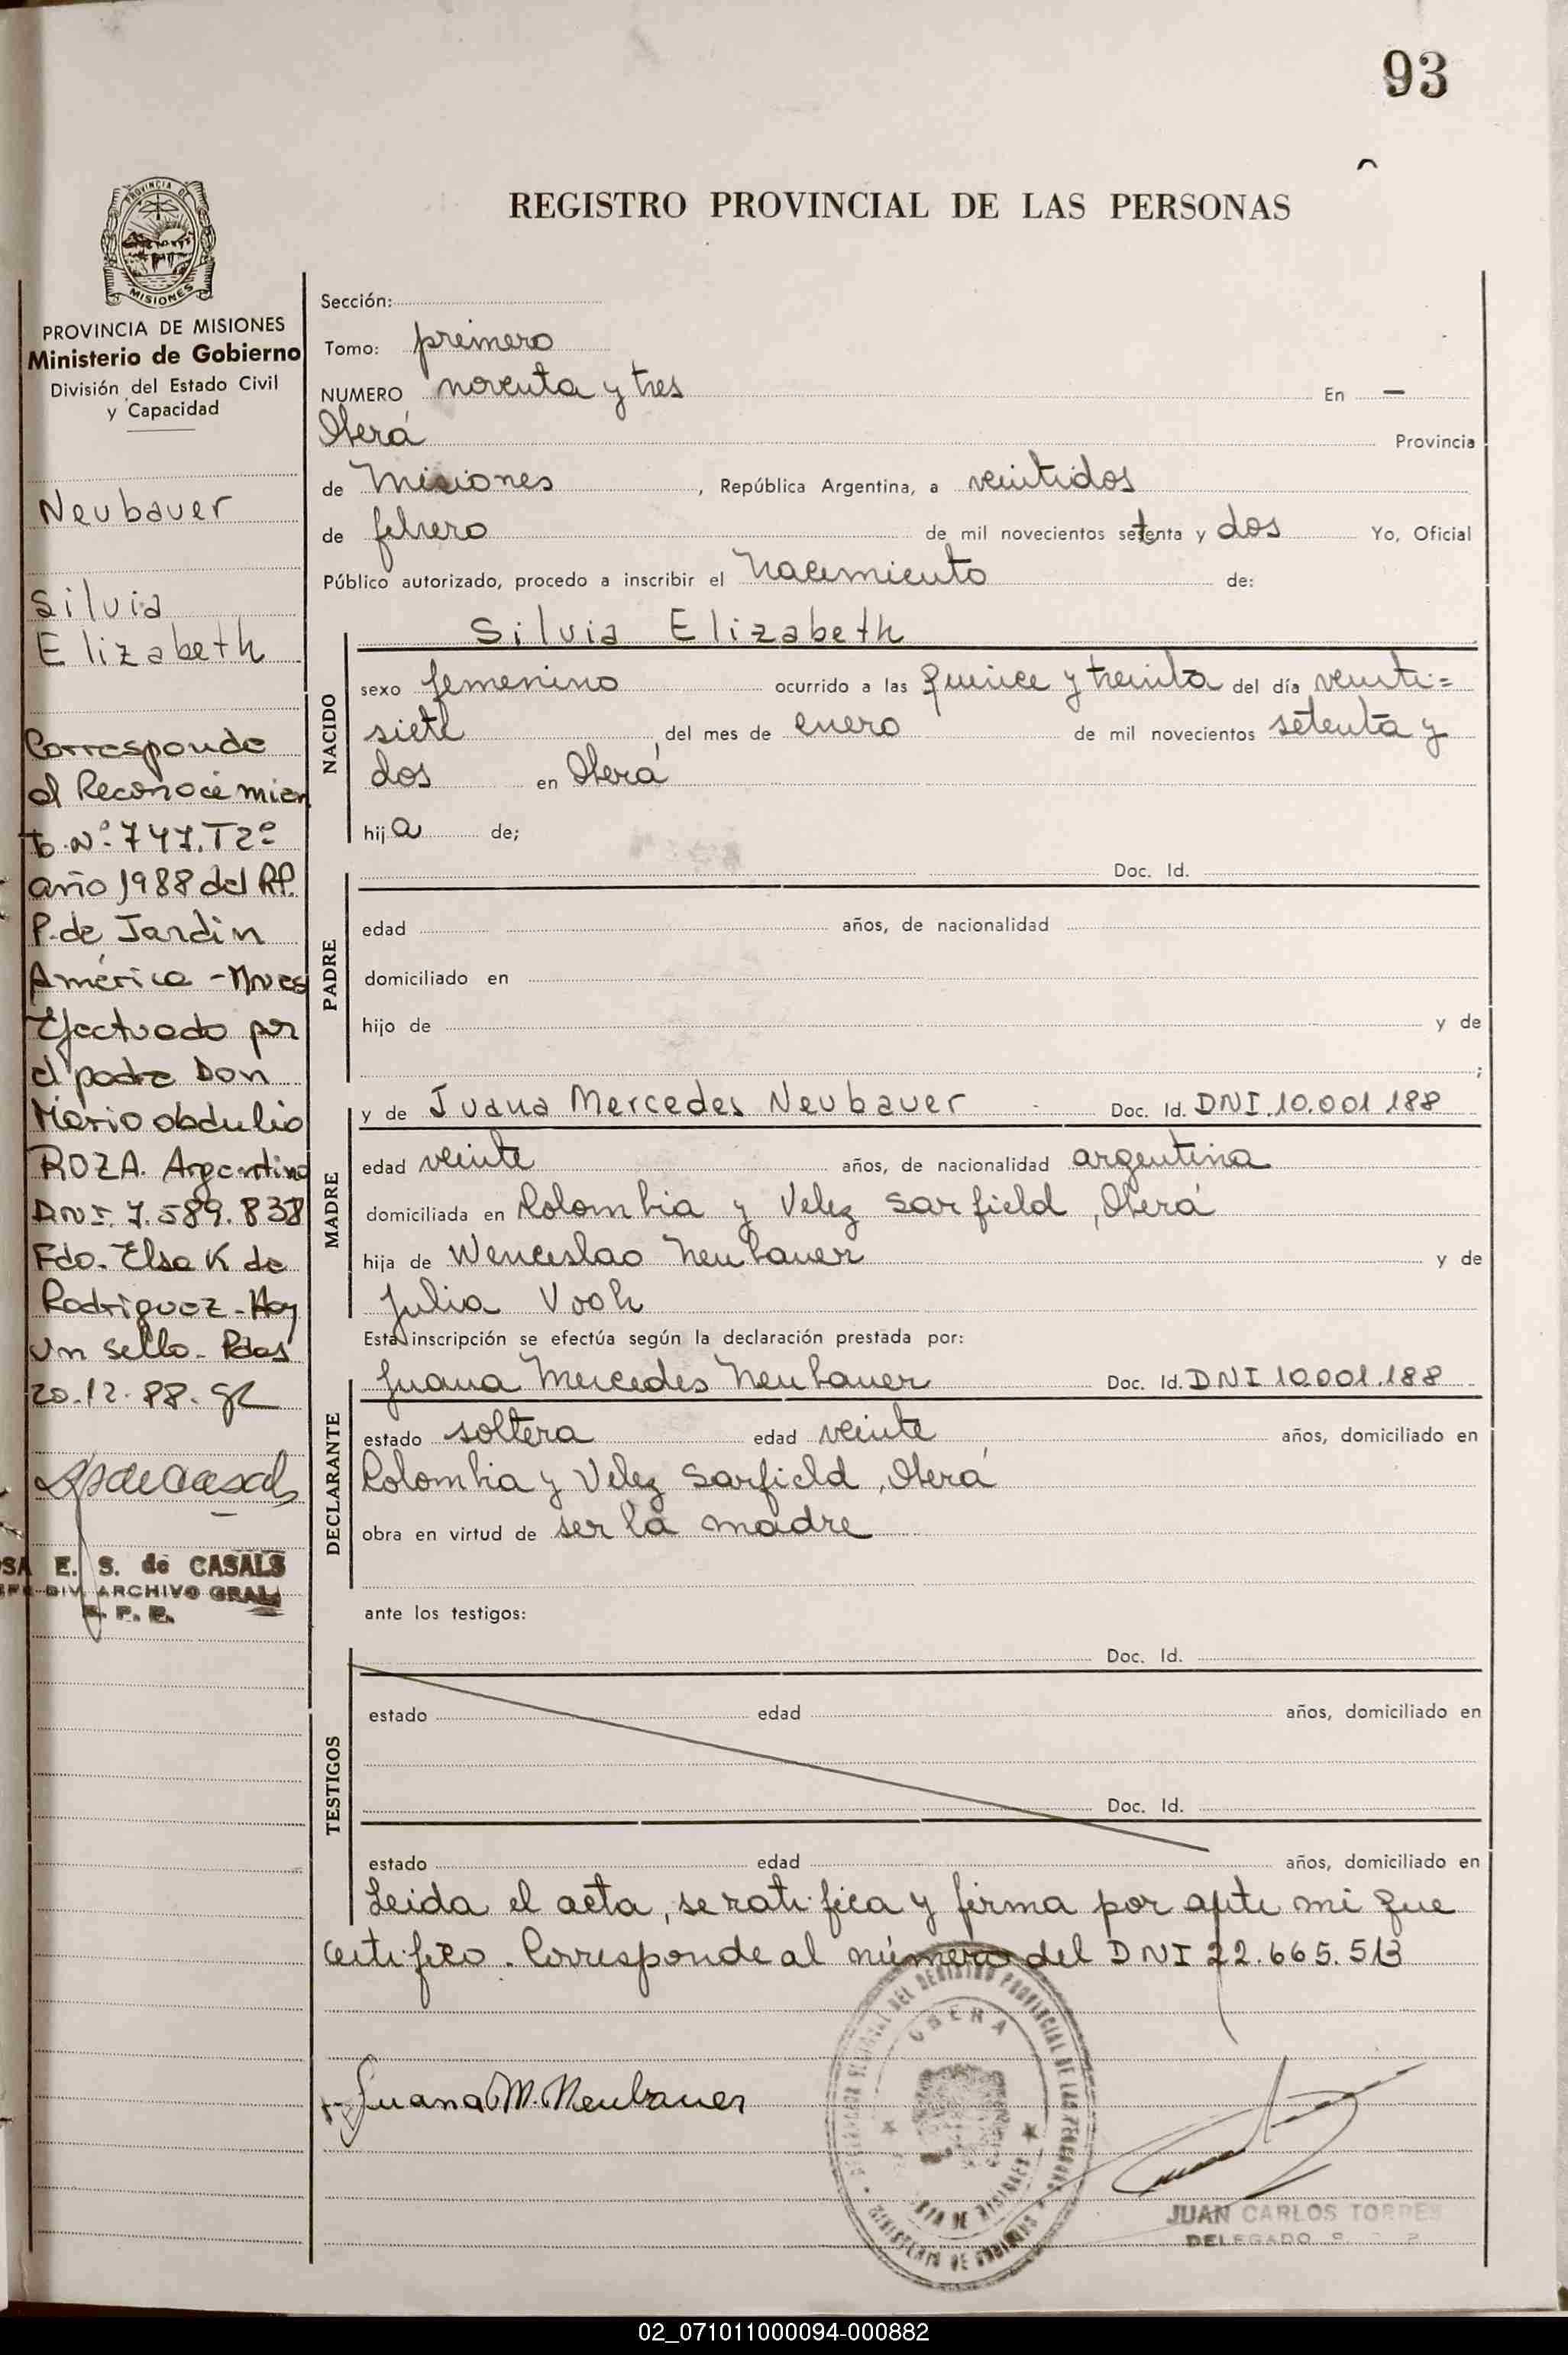 93
REGISTRO PROVINCIAL DE LAS PERSONAS
PROVINCIA DE MISIONES
PROVINCIA DE MISIONES
Ministerio de Gobierno
División del Estado Civil
y Capacidad
Neubauer
Silvia
Elizabeth
Corresponde
al Reconocimien
to Nº 747. T 2º
año 1988 del RP.
P. de Jardin
América - Mnes
Efectuado por
el padre Don
Mario obdulio
ROZA. Argentino
DNI. 7.589.838
Fdo. Elsa K de
Rodriguez - Hay
un sello. Pdas
20.12.88.
E. S. de CASALS
DIV. ARCHIVO GRAL.
Sección:
Tomo: primero
NUMERO noventa y tres En —
Oberá Provincia
de Misiones, República Argentina, a veintidos
de febrero de mil novecientos setenta y dos Yo, Oficial
Público autorizado, procedo a inscribir el nacimiento de:
Silvia Elizabeth
NACIDO
sexo femenino ocurrido a las quince y treinta del día veinti=
siete, del mes de enero de mil novecientos setenta y
dos en Oberá
hija de;
Doc. Id.
PADRE
edad años, de nacionalidad
domiciliado en
hijo de y de
;
MADRE
y de Juana Mercedes Neubauer Doc. Id. DNI.10.001.188
edad veinte años, de nacionalidad argentina
domiciliada en Colombia y Velez Sarfield, Oberá
hija de Wenceslao Neubauer y de
Julia Vooh
Esta inscripción se efectúa según la declaración prestada por:
DECLARANTE
Juana Mercedes Neubauer Doc. Id. DNI 10.001.188
estado soltera edad veinte años, domiciliado en
Colombia y Velez Sarfield, Oberá
obra en virtud de ser la madre
ante los testigos:
TESTIGOS
Doc. Id.
estado edad años, domiciliado en
Doc. Id.
estado edad años, domiciliado en
Leida el acta, se ratifica y firma por ante mi que
certifico. Corresponde al número del DNI 22.665.513
Juana M. Neubauer
DEL REGISTRO PROVINCIAL DE LAS PERSONAS
OBERA
MINISTERIO DE GOBIERNO
JUAN CARLOS TORRES
DELEGADO
02_071011000094-000882